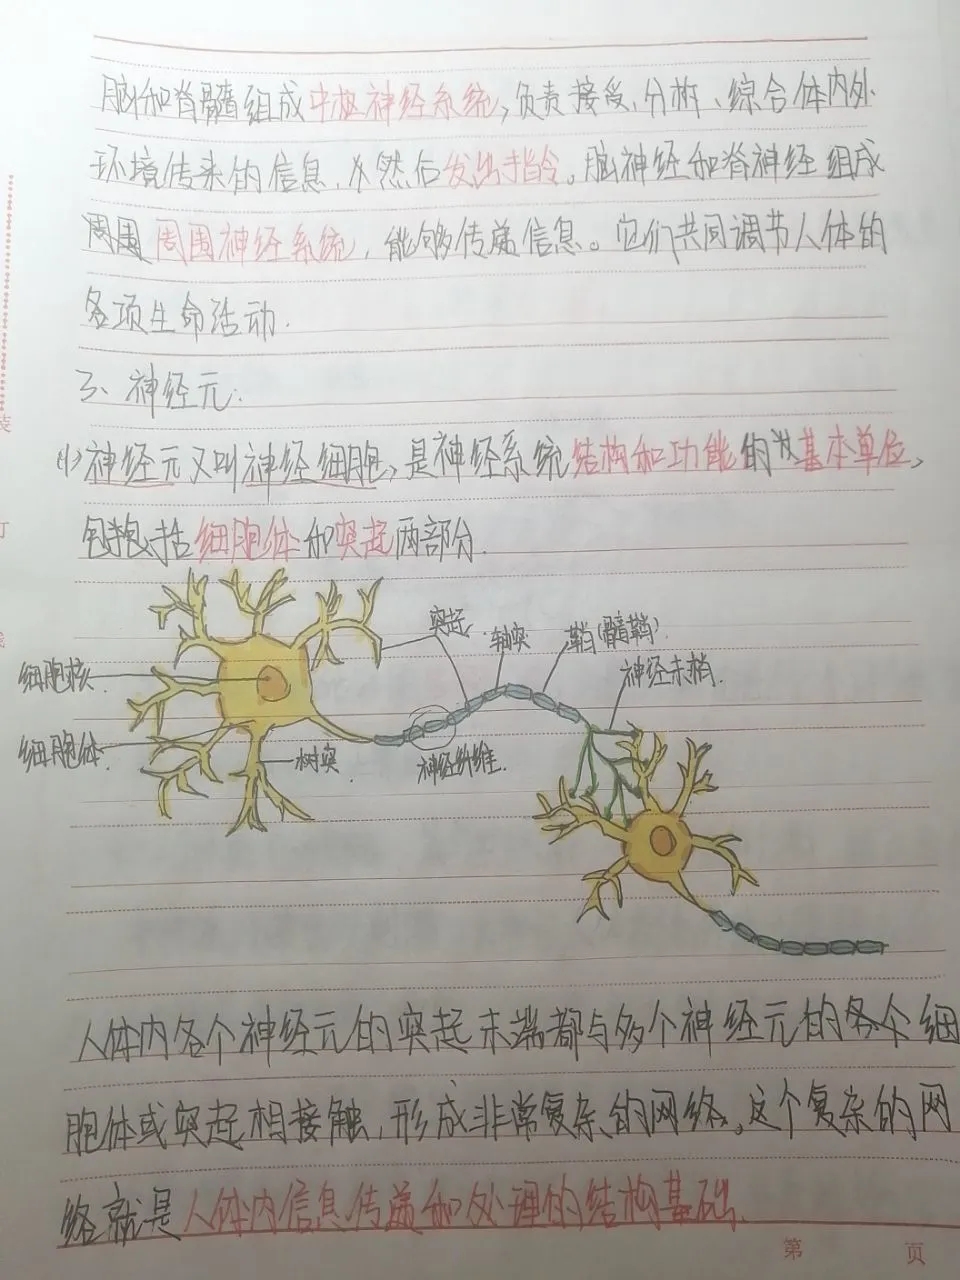 脑和脊髓组成中枢神经系统,负责接受、分析、综合体内外
环境传来的信息,然后发出指令。脑神经和脊神经组成
周围周围神经系统,能够传递信息。它们共同调节人体的
各项生命活动.
三、神经元:
(1)神经元又叫神经细胞,是神经系统结构和功能的基本单位,
包括细胞体和突起两部分.
突起.
轴突.
鞘(髓鞘).
神经末梢.
细胞核.
细胞体.
树突.
神经纤维.
人体内各个神经元的突起末端都与多个神经元的各个细
胞体或突起相接触,形成非常复杂的网络。这个复杂的网
络就是人体内信息传递和处理的结构基础.
装
订
线
第 页